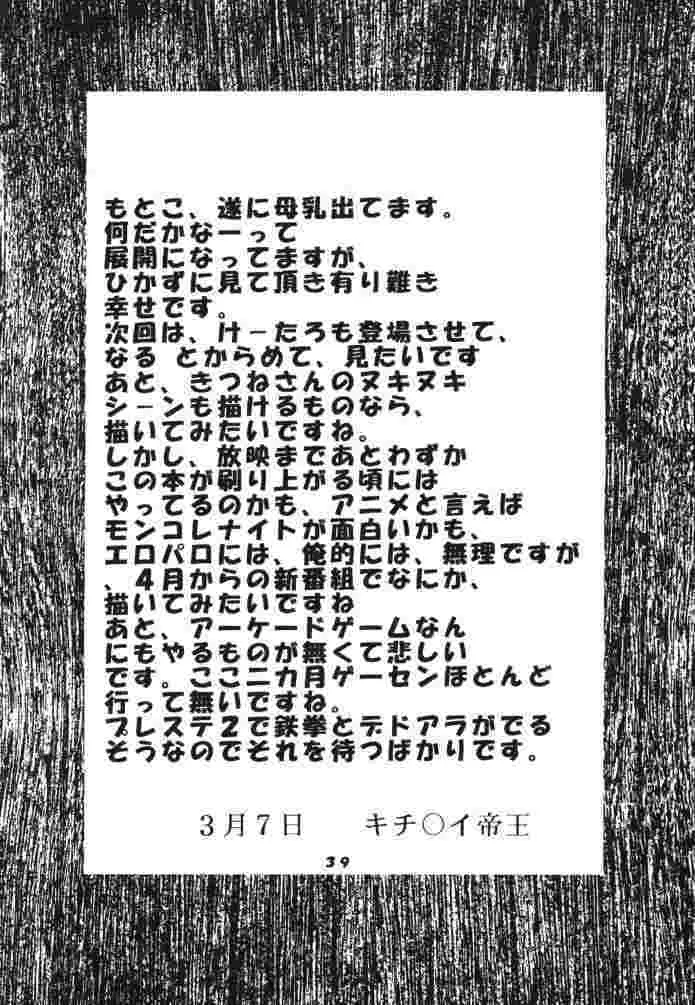 もとこ、遂に母乳出てます。
何だかなーって
展開になってますが、
ひかずに見て頂き有り難き
幸せです。
次回は、けーたろも登場させて、
なる とからめて、見たいです
あと、きつねさんのヌキヌキ
シーンも描けるものなら、
描いてみたいですね。
しかし、放映まであとわずか
この本が刷り上がる頃には
やってるのかも、アニメと言えば
モンコレナイトが面白いかも、
エロパロには、俺的には、無理ですが
、４月からの新番組でなにか、
描いてみたいですね
あと、アーケードゲームなん
にもやるものが無くて悲しい
です。ここ二カ月ゲーセンほとんど
行って無いですね。
プレステ２で鉄拳とデドアラがでる
そうなのでそれを待つばかりです。
３月７日　　キチ〇イ帝王
39